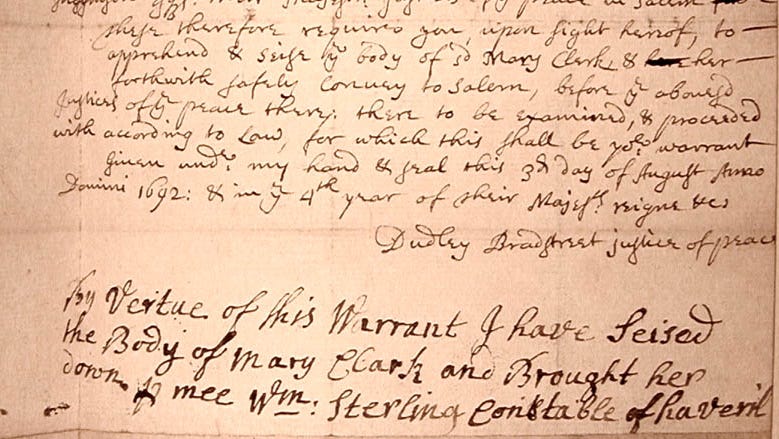 peace in Salem
these therefore require you, upon sight hereof, to —
apprehend & seise yᵉ body of sd Mary Clerk, & her —
forthwith safely Convey to Salem, before yᵉ abovesd
Justices of yᵉ peace there: there to be examined, & proceeded
with according to Law, for which this shall be yoʳ warrant
Given undʳ my hand & seal this 3d day of August Anno
Domini 1692: & in yᵉ 4th year of their Majesᵗˢ reigne &c
Dudley Bradstreet justice of peace
By Vertue of this Warrant I have Seised
the Body of Mary Clark and Brought her
down p mee Wm: Sterling Constable of haveril